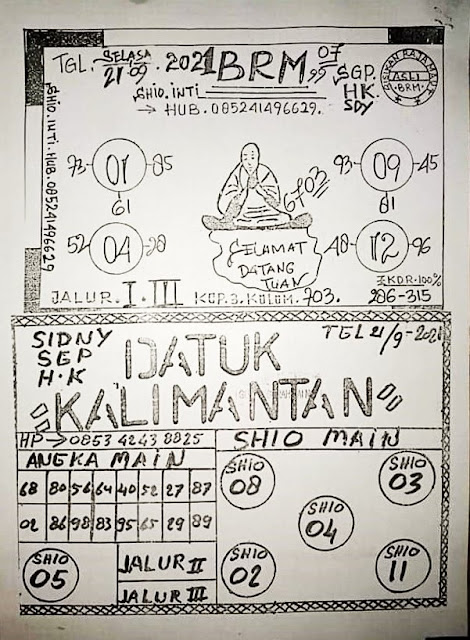 TGL. SELASA 21-09.2021 BRM. 07
SHIO.INTI
SGP.
HK
SDY
→ HUB. 085241496629.
ASLI
BRM
SHIO.INTI.HUB.085241496629
73 01 85
61
93 09 45
81
6703
52 04 28
48 12 96
SELAMAT
DATANG
TUAN
EKOR.100%
JALUR.I.III KOP.3.KOLOM.703. 286-315
SIDNY
SGP
H.K
TGL 21/9-2021
DATUK
"KALIMANTAN"
HP → 0853 4243 8825
SHIO MAIN
ANGKA MAIN
68 80 56 64 40 52 27 87
02 86 98 83 95 65 29 89
SHIO
08
SHIO
03
SHIO
04
SHIO
05
JALUR II
JALUR III
SHIO
02
SHIO
11